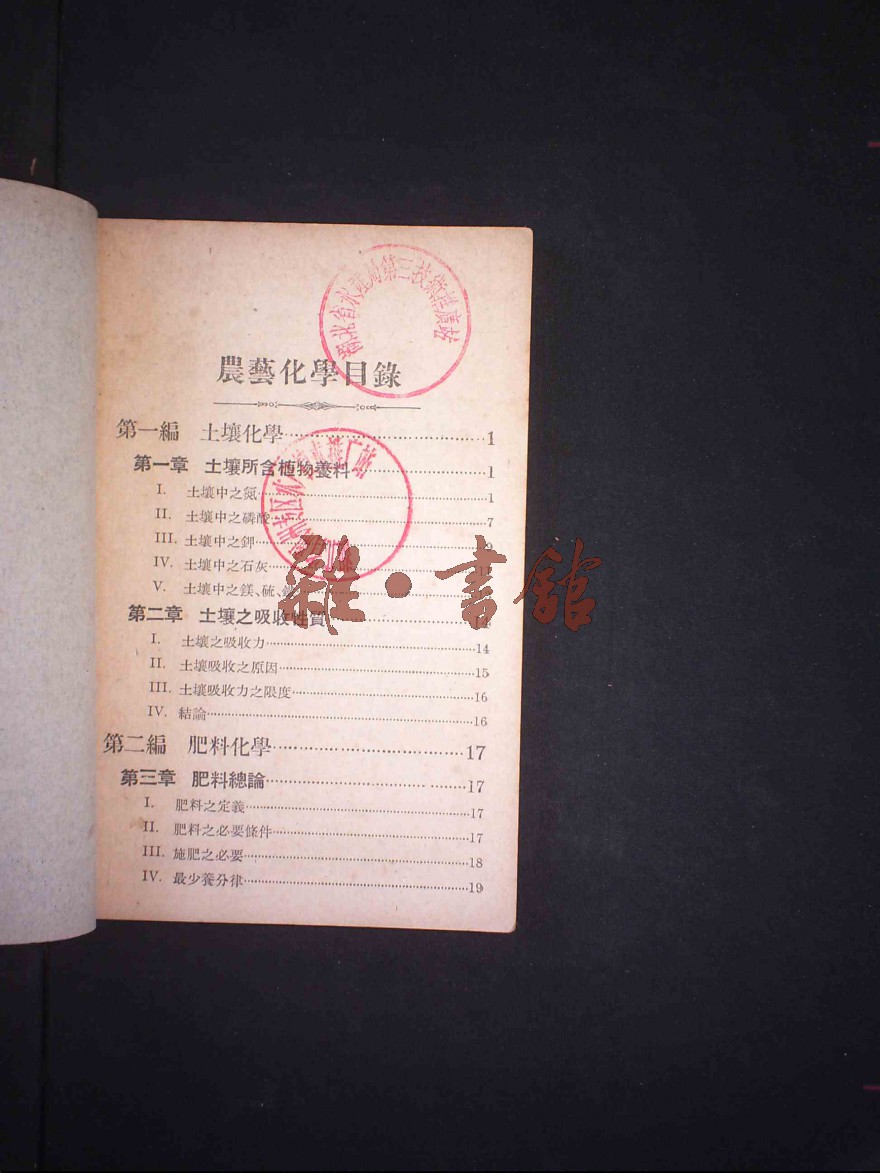 農藝化學目錄
第一編 土壤化學……1
第一章 土壤所含植物養料……1
I. 土壤中之氮……1
II. 土壤中之磷酸……7
III. 土壤中之鉀……9
IV. 土壤中之石灰……11
V. 土壤中之鎂、硫、
第二章 土壤之吸收性質……14
I. 土壤之吸收力……14
II. 土壤吸收之原因……15
III. 土壤吸收力之限度……16
IV. 結論……16
第二編 肥料化學……17
第三章 肥料總論……17
I. 肥料之定義……17
II. 肥料之必要條件……17
III. 施肥之必要……18
IV. 最少養分律……19
湖北省水產局第三技術推廣站
雜·書館